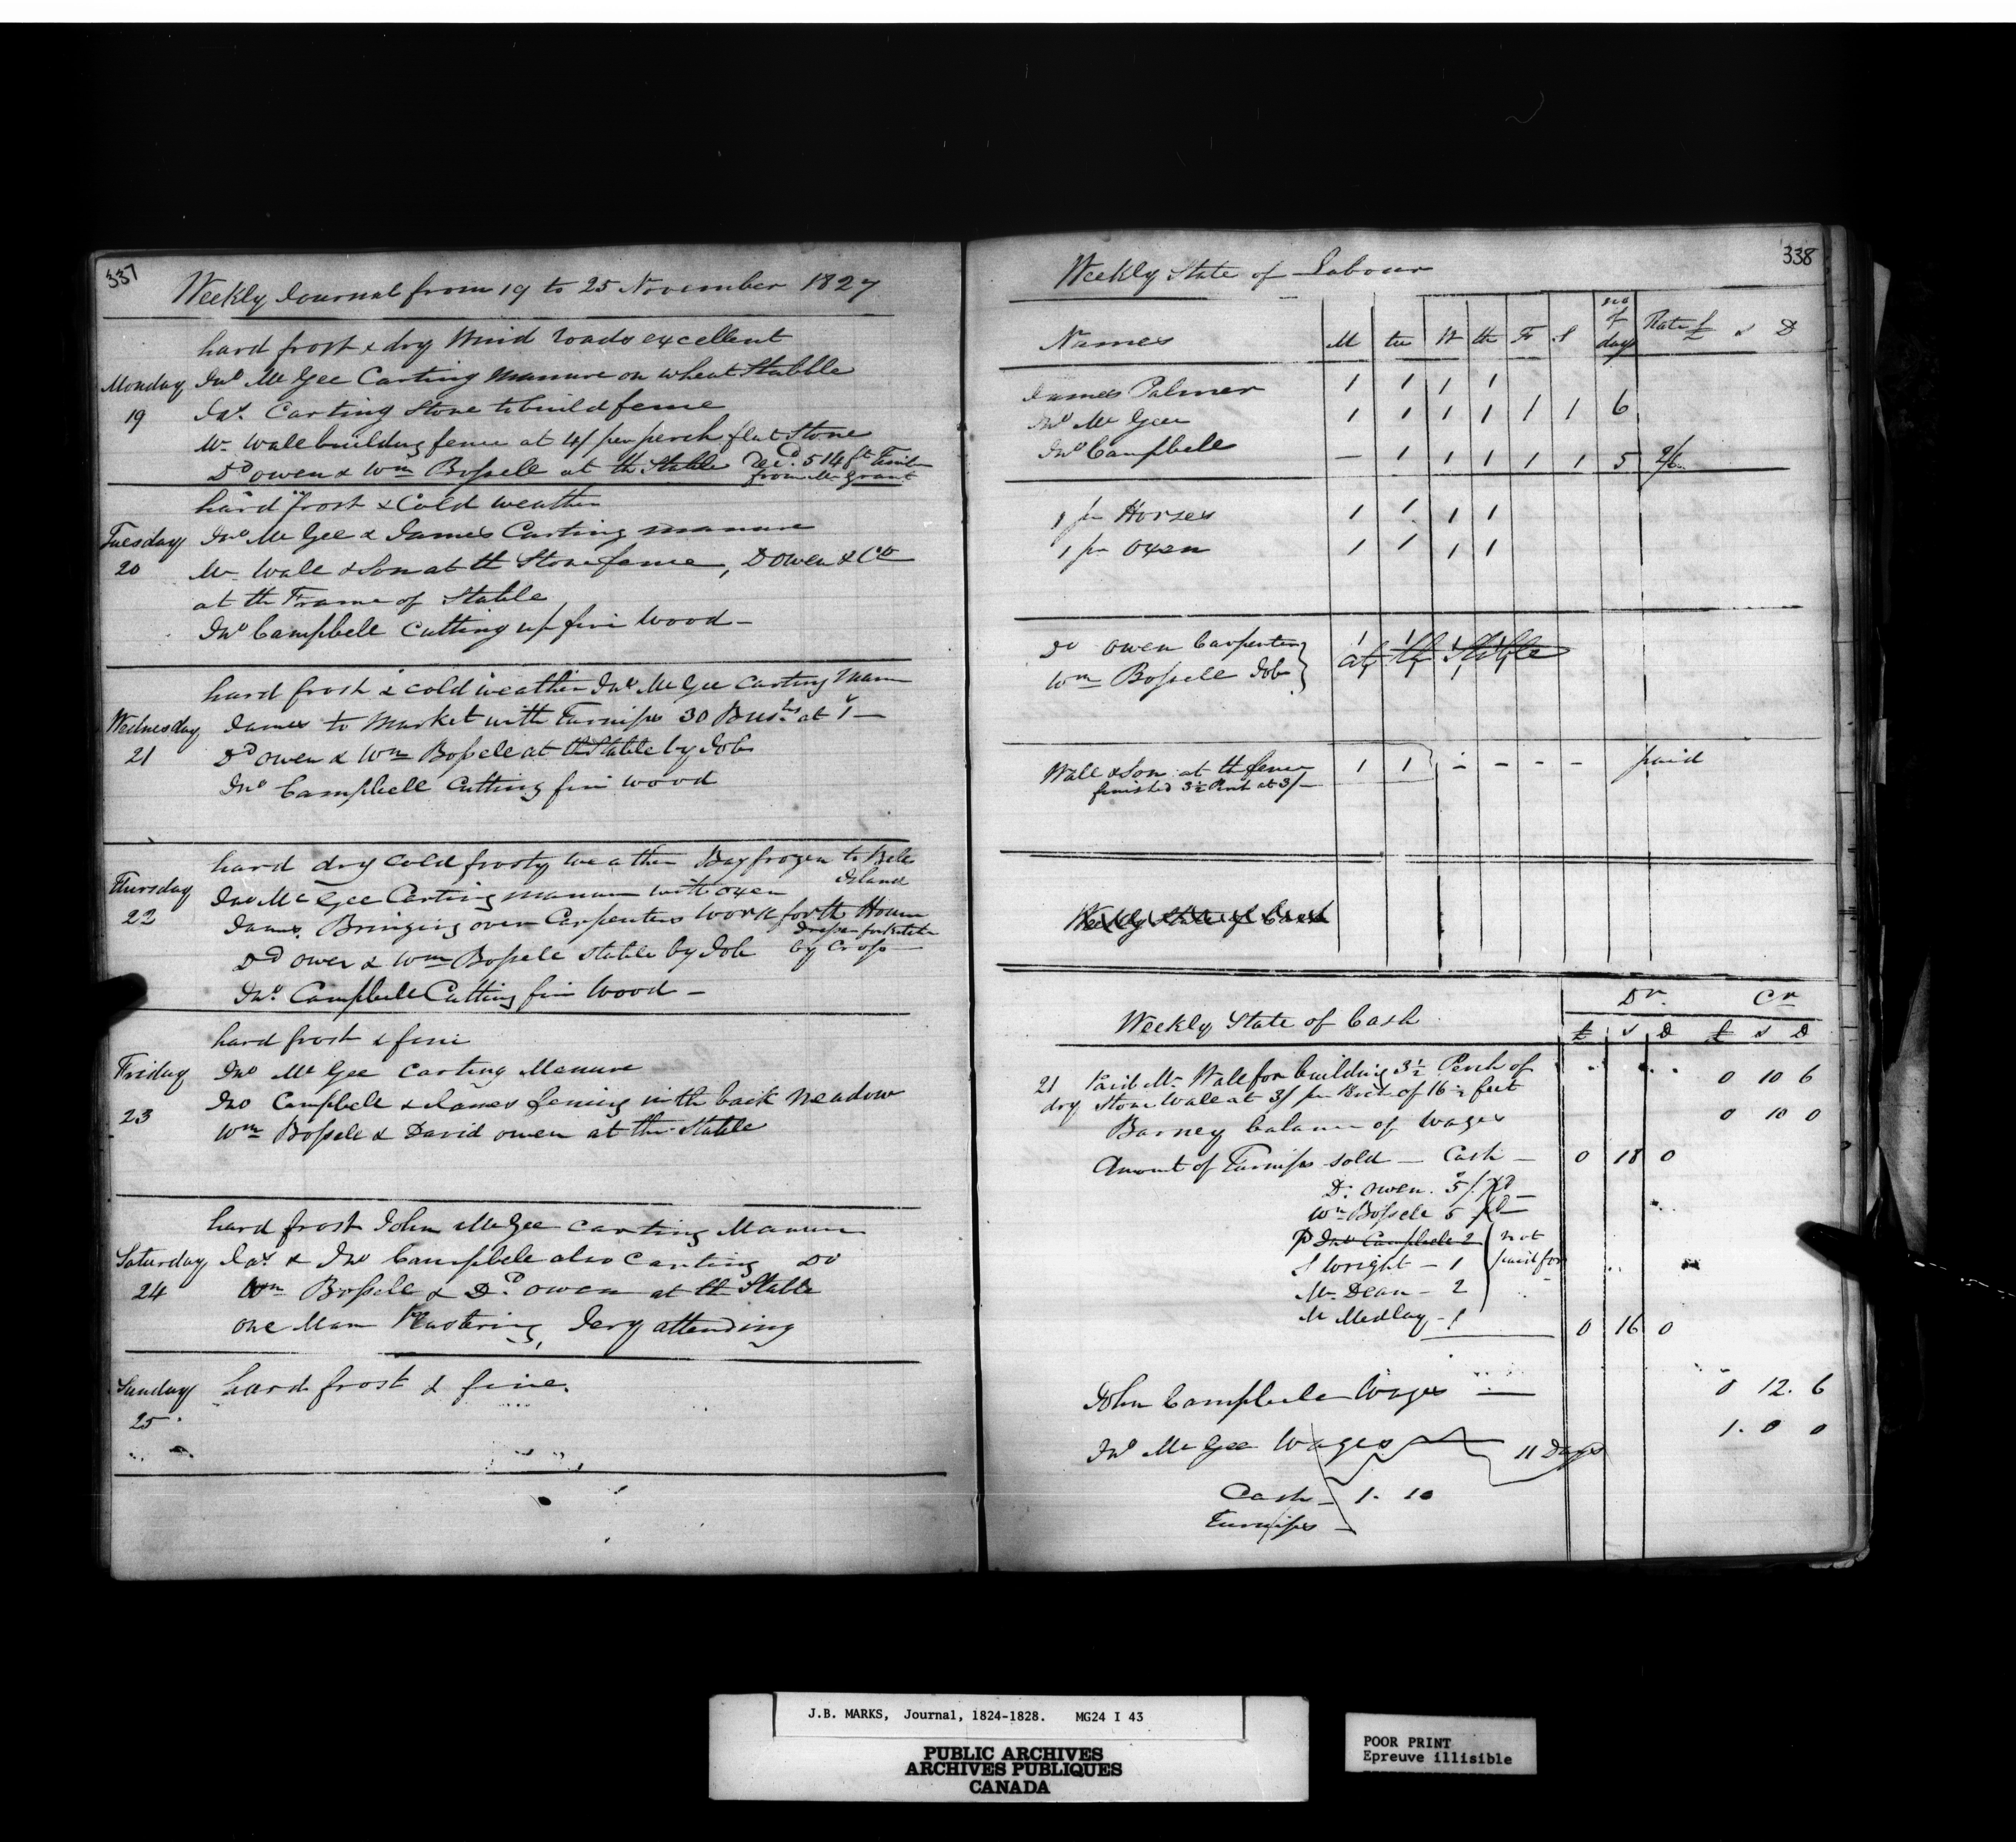 337
Weekly Journal from 19 to 25 November 1827
hard frost & dry Wind roads excellent
Monday Jno Mc Gee Carting Manure on wheat Stubble
19 Jas. Carting Stone to build fence
Mr Wall building fence at 4/ per perch flat Stone
Dd owen & Wm Bossele at th Stable Recd. 514 ft
from Mr Grant
hard frost & Cold weather
Tuesday Jno Mc Gee & James Carting manure
20 Mr Wall & Son at th Stone fence, D Owen & Co
at th Frame of Stable
Jno Campbell Cutting up fire wood -
hard frost & cold weather Jno Mc Gee Carting Man
Wednesday James to Market with Turnips 30 Bushs at 1/-
21 Dd owen & Wm Bossele at th Stable by Job
Jno Campbell Cutting fire wood
hard dry cold frosty weather Bay frozen to
Island
Thursday Jno Mc Gee Carting manure with oxen
22 James. Bringing over Carpenters work for th House
Dd owen & Wm Bossele Stable by Job by Cross
Jno. Campbell Cutting fire wood -
hard frost & fine
Friday Jno Mc Gee Carting Manure
23 Jno Campbell & James fencing in th back Meadow
Wm Bossele & David owen at the Stable
hard frost John McGee Carting Manure
Saturday Jas & Jno Campbele also Carting Do
24 Wm Bossele & Dd. owen at th Stable
one Man Plastering, Jery attending
Sunday hard frost & fine.
25.
338
Weekly State of Labour
Names M tu W th Fr S no of days Rate £ s D
James Palmer 1 1 1 1
Jno Mc Gee 1 1 1 1 1 1 6
Jno Campbell - 1 1 1 1 1 5 2/6
1 pr Horses 1 1 1 1
1 pr Oxen 1 1 1 1
Dd owen Carpenter 1 1 1 1
Wm Bossele Job at th Stable
Wall & Son at th fence 1 1 - - - - paid
finished 3½ at 3/-
Weekly State of Cash
Dr. Cr
Weekly State of Cash £ s D £ s D
21 Paid Mr Wall for building 3½ Perch of 0 10 6
dry Stone Wall at 3/ per Perch of 16½ feet
Barney balance of wages 0 10 0
Amount of Turnips sold - Cash - 0 18 0
D. owen. 5/. pd -
Wm Bossele 5 pd -
P Jno Campbele 2 not
S Wright - 1 paid for
Mr Dean - 2
M Medlay - 1 0 16 0
John Campbele Wages - 0 12. 6
Jno Mc Gee Wages 11 Days 1. 0 0
Cash - 1. 10
Turnips -
J.B. MARKS, Journal, 1824-1828. MG24 I 43
PUBLIC ARCHIVES
ARCHIVES PUBLIQUES
CANADA
POOR PRINT
Epreuve illisible